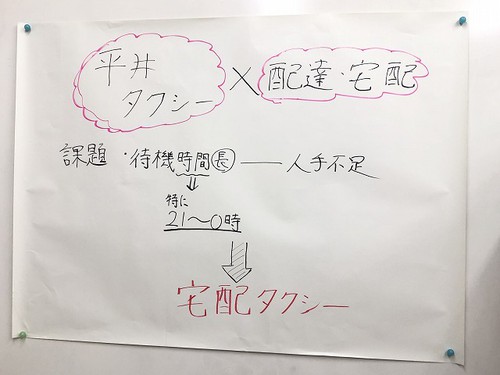 平井
タクシー × 配達・宅配
課題 ・待機時間長 — 人手不足
⇓
特に
21〜0時
宅配タクシー